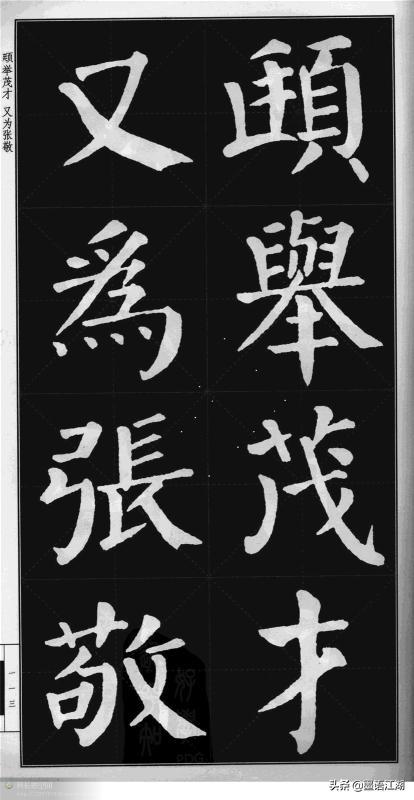 頲舉茂才
又為張敬
頲举茂才 又为张敬
一一三
头条 @墨语江湖